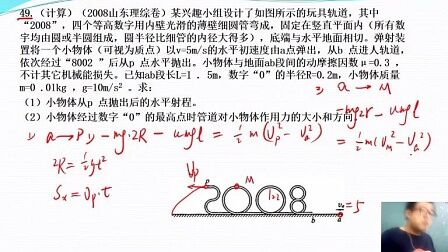 49. (计算)(2008山东理综卷)某兴趣小组设计了如图所示的玩具轨道,其中
“2008”,四个等高数字用内壁光滑的薄壁细圆管弯成,固定在竖直平面内(所有数
字均由圆或半圆组成,圆半径比细管的内径大得多),底端与水平地面相切。弹射装
置将一个小物体(可视为质点)以v=5m/s的水平初速度由a点弹出,从b 点进人轨道,
依次经过“8002 ”后从p 点水平抛出。小物体与地面ab段间的动摩擦因数μ=0.3 ,
不计其它机械能损失。已知ab段长L=1 . 5m,数字“0”的半径R=0.2m,小物体质量
m=0 .01kg ,g=10m/s² 。求:
(1)小物体从p 点抛出后的水平射程。
(2)小物体经过数字“0”的最高点时管道对小物体作用力的大小和方向
2) a → M
-mg2r - umgl
= ½m(Vm² - Va²)
1) a → P) -mg·2R - umgl = ½m(Vp² - Va²)
2R = ½gt²
Sx = Vp·t
Vp
P
M
b
a
= 5